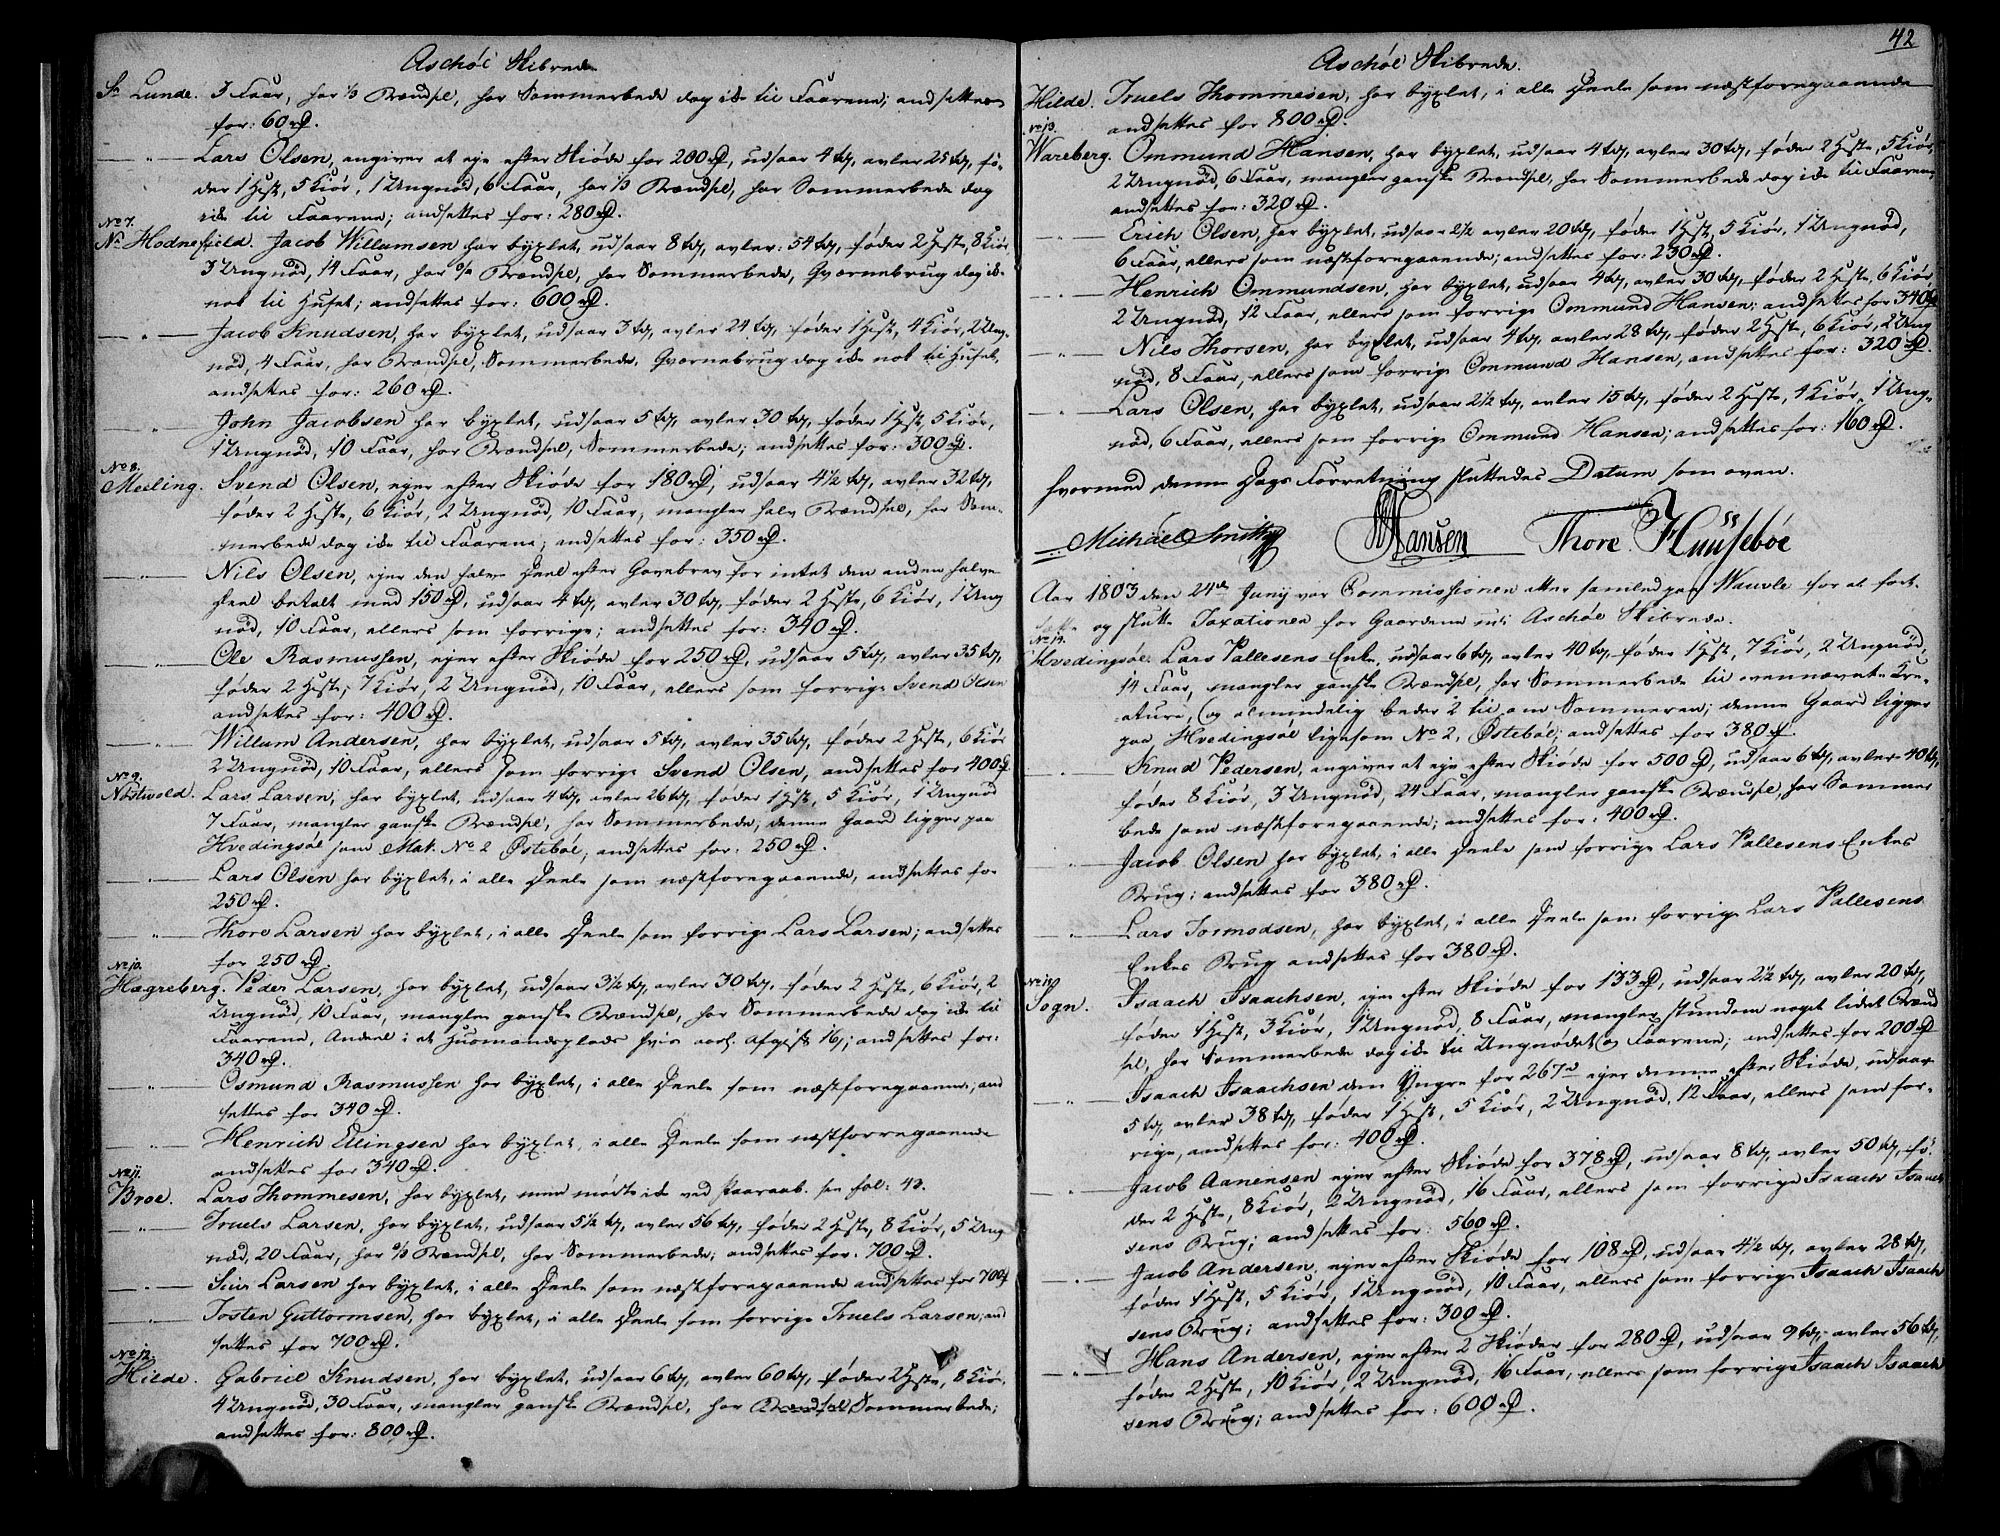 Aschøe Skibrede
Sr Lunde. 3 Faar, har 1/3 Brændsel, har Sommerbede dog ikke til Faarene; andsættes
for: 60 rd.
Lars Olsen, angiver at eje efter Skiøde for 200 rd, udsaar 4 td, avler 25 td, fø-
der 1 Hest, 5 Kiør, 1 Ungnød, 6 Faar, har 1/3 Brændsel, har Sommerbede dog
ikke til Faarene; andsættes for: 280 rd.
No 7.
Nr Hodnefield. Jacob Willumsen har byxlet, udsaar 8 td, avler: 54 td, føder 2 Heste, 8 Kiør
3 Ungnød, 14 Faar, har Brændsel, har Sommerbede, Qværnebrug dog ik-
nok til Huset; andsættes for: 600 rd.
Jacob Knudsen, har byxlet, udsaar 3 td, avler 24 td, føder 1 Hest, 4 Kiør, 2 Ung-
nød, 4 Faar, har Brændsel, Sommerbede, Qværnebrug dog ikke nok til Huset,
andsættes for: 260 rd.
John Jacobsen har byxlet, udsaar 5 td, avler 30 td, føder 1 Hest, 5 Kiør,
1 Ungnød, 10 Faar, har Brændsel, Sommerbede; andsættes for: 300 rd.
No 8.
Meeling. Svend Olsen, ejer efter Skiøde for 180 rd, udsaar 4 1/2 td, avler 32 td,
føder 2 Heste, 6 Kiør, 2 Ungnød, 10 Faar, mangler halv Brændsel, har Som-
merbede dog ikke til Faarene; andsættes for: 350 rd.
Nils Olsen, ejer den halve Deel efter Gavebrev for intet den anden halve
Deel betalt med 150 rd, udsaar 4 td, avler 30 td, føder 2 Heste, 6 Kiør, 1 Ung
nød, 10 Faar, ellers som forrige; andsættes for: 340 rd.
Ole Rasmussen, ejer efter Skiøde for 250 rd, udsaar 5 td, avler 35 td,
føder 2 Heste, 7 Kiør, 2 Ungnød, 10 Faar, ellers som forrige Svend Olsen
andsættes for: 400 rd.
Willum Andersen, har byxlet, udsaar 5 td, avler 35 td, føder 2 Heste, 6 Kiør
2 Ungnød, 10 Faar, ellers som forrige Svend Olsen, andsættes for 400 rd
No 9.
Nøstvold. Lars Larsen, har byxlet, udsaar 4 td, avler 26 td, føder 1 Hest, 5 Kiør, 1 Ungnød
7 Faar, mangler ganske Brændsel, har Sommerbede; denne Gaard ligger paa
Hvedingsøe som Mat. No 2 Østebøe; andsættes for: 250 rd.
Lars Olsen har byxlet, i alle Deele som næstforegaaende, andsættes for
250 rd.
Thore Larsen har byxlet, i alle Deele som forrige Lars Larsen; andsættes
for 250 rd.
No 10.
Hægreberg. Peder Larsen, har byxlet, udsaar 3 1/2 td, avler 30 td, føder 2 Heste, 6 Kiør, 2
Ungnød, 10 Faar, mangler ganske Brændsel, har Sommerbede dog ikke til
Faarene, Andeel i et Huusmandsplads hvis aarl. Afgift; andsættes for:
340 rd.
Osmund Rasmussen har byxlet, i alle Deele som næstforegaaende, and
sættes for 340 rd.
Henrich Ellingsen har byxlet, i alle Deele som næstforegaaende
andsættes for 340 rd.
No 11.
Broe. Lars Thommesen, har byxlet, men mødte ikke ved paaraab. see fol: 43.
Truels Larsen, har byxlet, udsaar 5 1/2 td, avler 56 td, føder 2 Heste, 8 Kiør, 5 Ung
nød, 20 Faar, har Brændsel, har Sommerbede; andsættes for: 700 rd.
Siur Larsen har byxlet, i alle Deele som næstforegaaende andsættes for 700 rd
Tosten Guttormsen, har byxlet, i alle Deele som forrige Truels Larsen; and
sættes for 700 rd.
No 12.
Hilde. Gabriel Knudsen, har byxlet, udsaar 6 td, avler 60 td, føder 2 Heste, 8 Kiør,
4 Ungnød, 30 Faar, mangler ganske Brændsel, har Brændsel Sommerbede;
andsættes for: 800 rd.
42
Aschøe Skibrede.
Hilde. Truels Thommesen, har byxlet, i alle Deele som næstforegaaende
andsættes for 800 rd.
No 13.
Wareberg. Ommund Hansen, har byxlet, udsaar 4 td, avler 30 td, føder 2 Heste, 5 Kiør,
2 Ungnød, 6 Faar, mangler ganske Brændsel, har Sommerbede dog ikke til Faarene,
andsættes for: 320 rd.
Erich Olsen, har byxlet, udsaar 2 1/2 avler 20 td, føder 1 Hest, 5 Kiør, 1 Ungnød,
6 Faar, ellers som næstforegaaende; andsættes for: 230 rd.
Henrich Ommundsen, har byxlet, udsaar 4 td, avler 30 td, føder 2 Heste, 6 Kiør,
2 Ungnød, 12 Faar, ellers som forrige Ommund Hansen; andsættes for 340 rd
Nils Thorsen, har byxlet, udsaar 4 td, avler 28 td, føder 2 Heste, 6 Kiør, 2 Ung
nød, 8 Faar, ellers som forrige Ommund Hansen, andsættes for: 320 rd.
Lars Olsen, har byxlet, udsaar 2 1/2 td, avler 15 td, føder 2 Heste, 4 Kiør, 1 Ung-
nød, 6 Faar, ellers som forrige Ommund Hansen; andsættes for: 160 rd.
hvormed denne Dags Forretning sluttedes Datum som oven.
Michael Smith Hansen Thore Huusebøe
Aar 1803 den 24de Junij var Commissionen atter samled paa Wauvle for at fort-
sætte og slutte Taxationen for Gaardene udi Aschøe Skibrede.
Hvedingsøe. Lars Pallesens Enke, udsaar 6 td, avler 40 td, føder 1 Hest, 7 Kiør, 2 Ungnød,
14 Faar, mangler ganske Brændsel, har Sommerbede til ovennævnte Kre-
ature, og almindelig beder 2 til om Sommeren; denne Gaard ligger
paa Hvedingsøe ligesom No 2, Østebøe; andsættes for 380 rd.
Knud Pedersen, angiver at eje efter Skiøde for 500 rd, udsaar 6 td, avler 40 td,
føder 8 Kiør, 3 Ungnød, 24 Faar, mangler ganske Brændsel, har Sommer
bede som næstforegaaende; andsættes for: 400 rd.
Jacob Olsen har byxlet, i alle Deele som forrige Lars Pallesens Enkes
Brug; andsættes for 380 rd.
Lars Tormodsen, har byxlet, i alle Deele som forrige Lars Pallesens
Enkes Brug andsættes for 380 rd.
Sogn. Isaach Isaachsen, ejer efter Skiøde for 133 rd, udsaar 2 1/2 td, avler 20 td,
føder 1 Hest, 3 Kiør, 1 Ungnød, 8 Faar, mangler stundom noget lidet Brænd
sel, har Sommerbede dog ikke til Ungnødet og Faarene; andsættes for 200 rd
Isaach Isaachsen den Yngre for 267 rd ejer denne efter Skiøde, udsaar
5 td, avler 38 td, føder 1 Hest, 5 Kiør, 2 Ungnød, 12 Faar, ellers som for-
rige, andsættes for: 400 rd.
Jacob Aanensen ejer efter Skiøde for 378 rd, udsaar 8 td, avler 50 td, fø-
der 2 Heste, 8 Kiør, 2 Ungnød, 16 Faar, ellers som forrige Isaach Isaach
sens Brug; andsættes for: 560 rd.
Jacob Andersen, ejer efter Skiøde for 108 rd, udsaar 4 1/2 td, avler 28 td,
føder 1 Hest, 5 Kiør, 1 Ungnød, 10 Faar, ellers som forrige Isaach Isaach
sens Brug; andsættes for: 300 rd.
Hans Andersen, ejer efter 2 Skiøder for 280 rd, udsaar 9 td, avler 56 td,
føder 2 Heste, 10 Kiør, 2 Ungnød, 16 Faar, ellers som forrige Isaach Isaach
sens Brug; andsættes for: 600 rd.